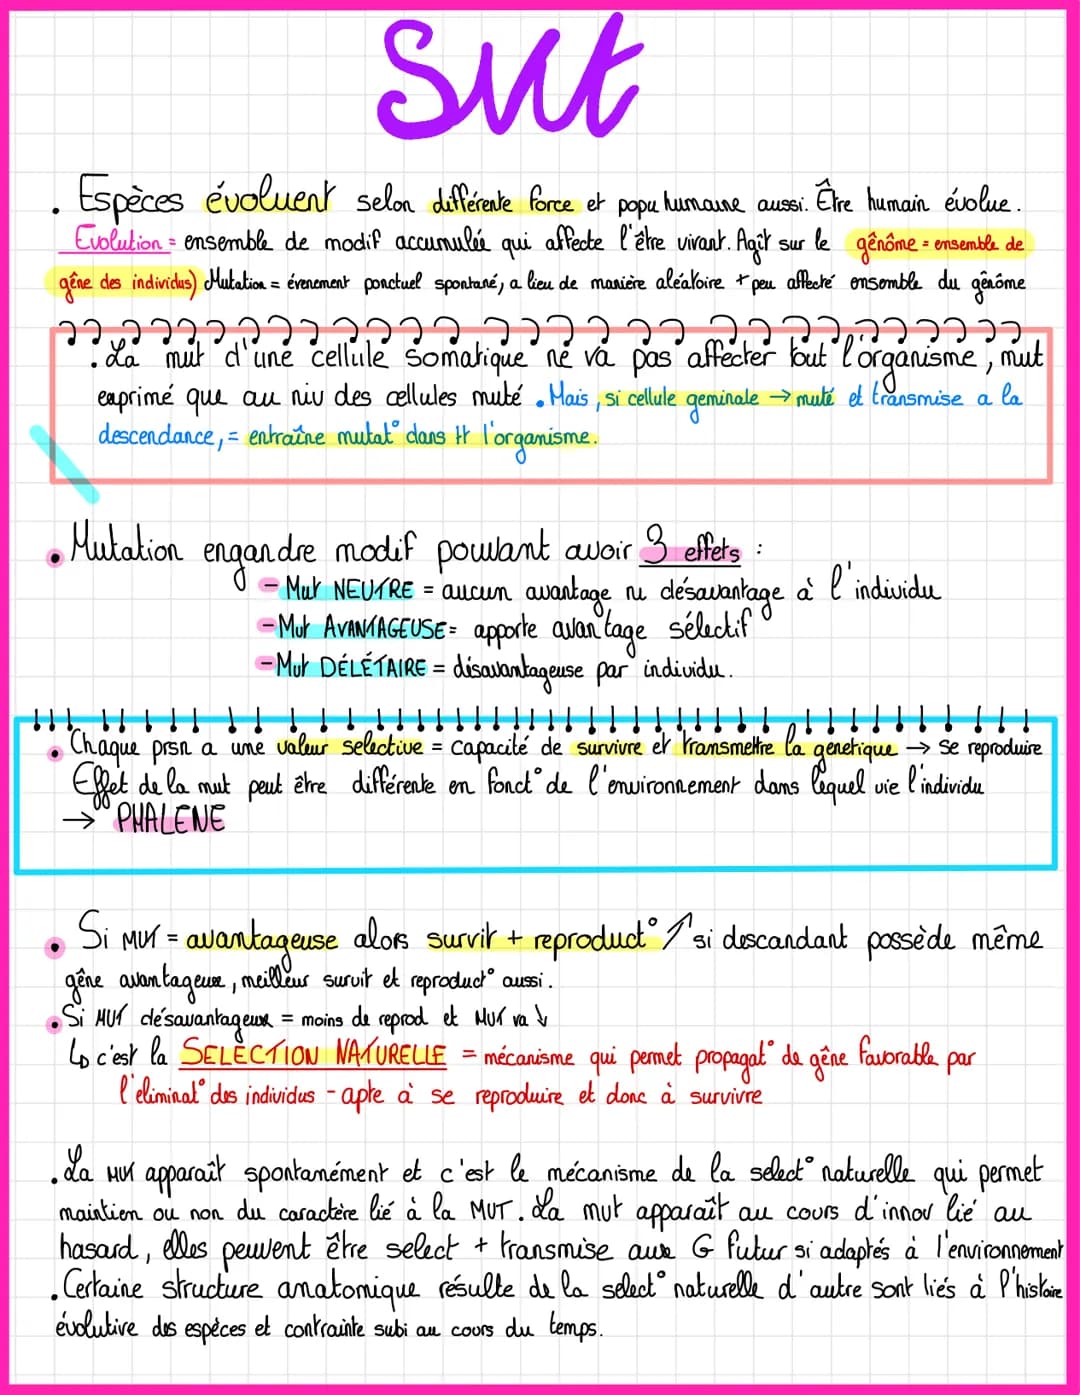 Svt
. Espèces évoluent selon différente force et popu humaine aussi. Être humain évolue.
Evolution = ensemble de modif accumulée qui affecte l'être vivant. Agit sur le gênôme = ensemble de
gêne des individus) Mutation = évenement ponctuel spontané, a lieu de manière aléatoire + peu affecté ensemble du gênôme
. La mut d'une cellule somatique ne va pas affecter tout l'organisme, mut
exprimé que au niv des cellules muté. Mais, si cellule geminale → muté et transmise a la
descendance, = entraîne mutat° dans tt l'organisme.
• Mutation engandre modif pouvant avoir 3 effets :
- Mut NEUTRE = aucun avantage ni désavantage à l'individu
- Mut AVANTAGEUSE = apporte avantage sélectif
- Mut DÉLÉTAIRE = désavantageuse par individu.
• Chaque prsn a une valeur selective = capacité de survivre et transmettre la genetique → se reproduire
Effet de la mut peut être différente en fonct° de l'environnement dans lequel vie l'individu
→ PHALENE
• Si MUT = avantageuse alors survit + reproduct° ↑ si descandant possède même
gêne avantageuse, meilleur survit et reproduct° aussi.
• Si MUT désavantageux = moins de reprod et MUT va ↓
↳ c'est la SELECTION NATURELLE = mécanisme qui permet propagat° de gêne favorable par
l'éliminat° des individus - apte à se reproduire et donc à survivre
. La MUT apparaît spontanément et c'est le mécanisme de la select° naturelle qui permet
maintien ou non du caractère lié à la MUT. La mut apparaît au cours d'innov lié au
hasard, elles peuvent être select + transmise aux G futur si adaptés à l'environnement
. Certaine structure anatomique résulte de la select° naturelle d'autre sont liés à l'histoire
évolutive des espèces et contrainte subi au cours du temps.